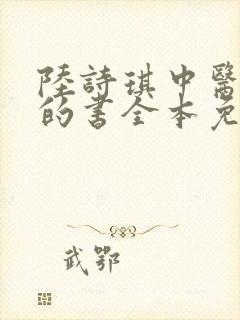 陸詩琪中醫
的書全本免
武鄂